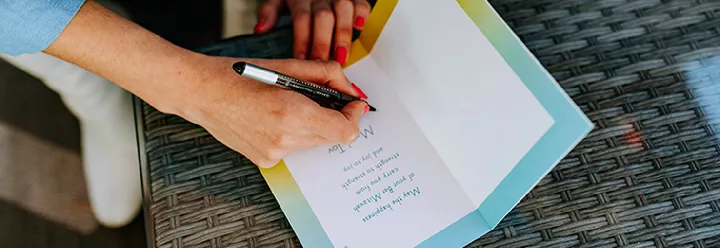 May the happiness
of your Bar Mitzvah
carry you from
strength to strength
and joy to joy.
M   Tov